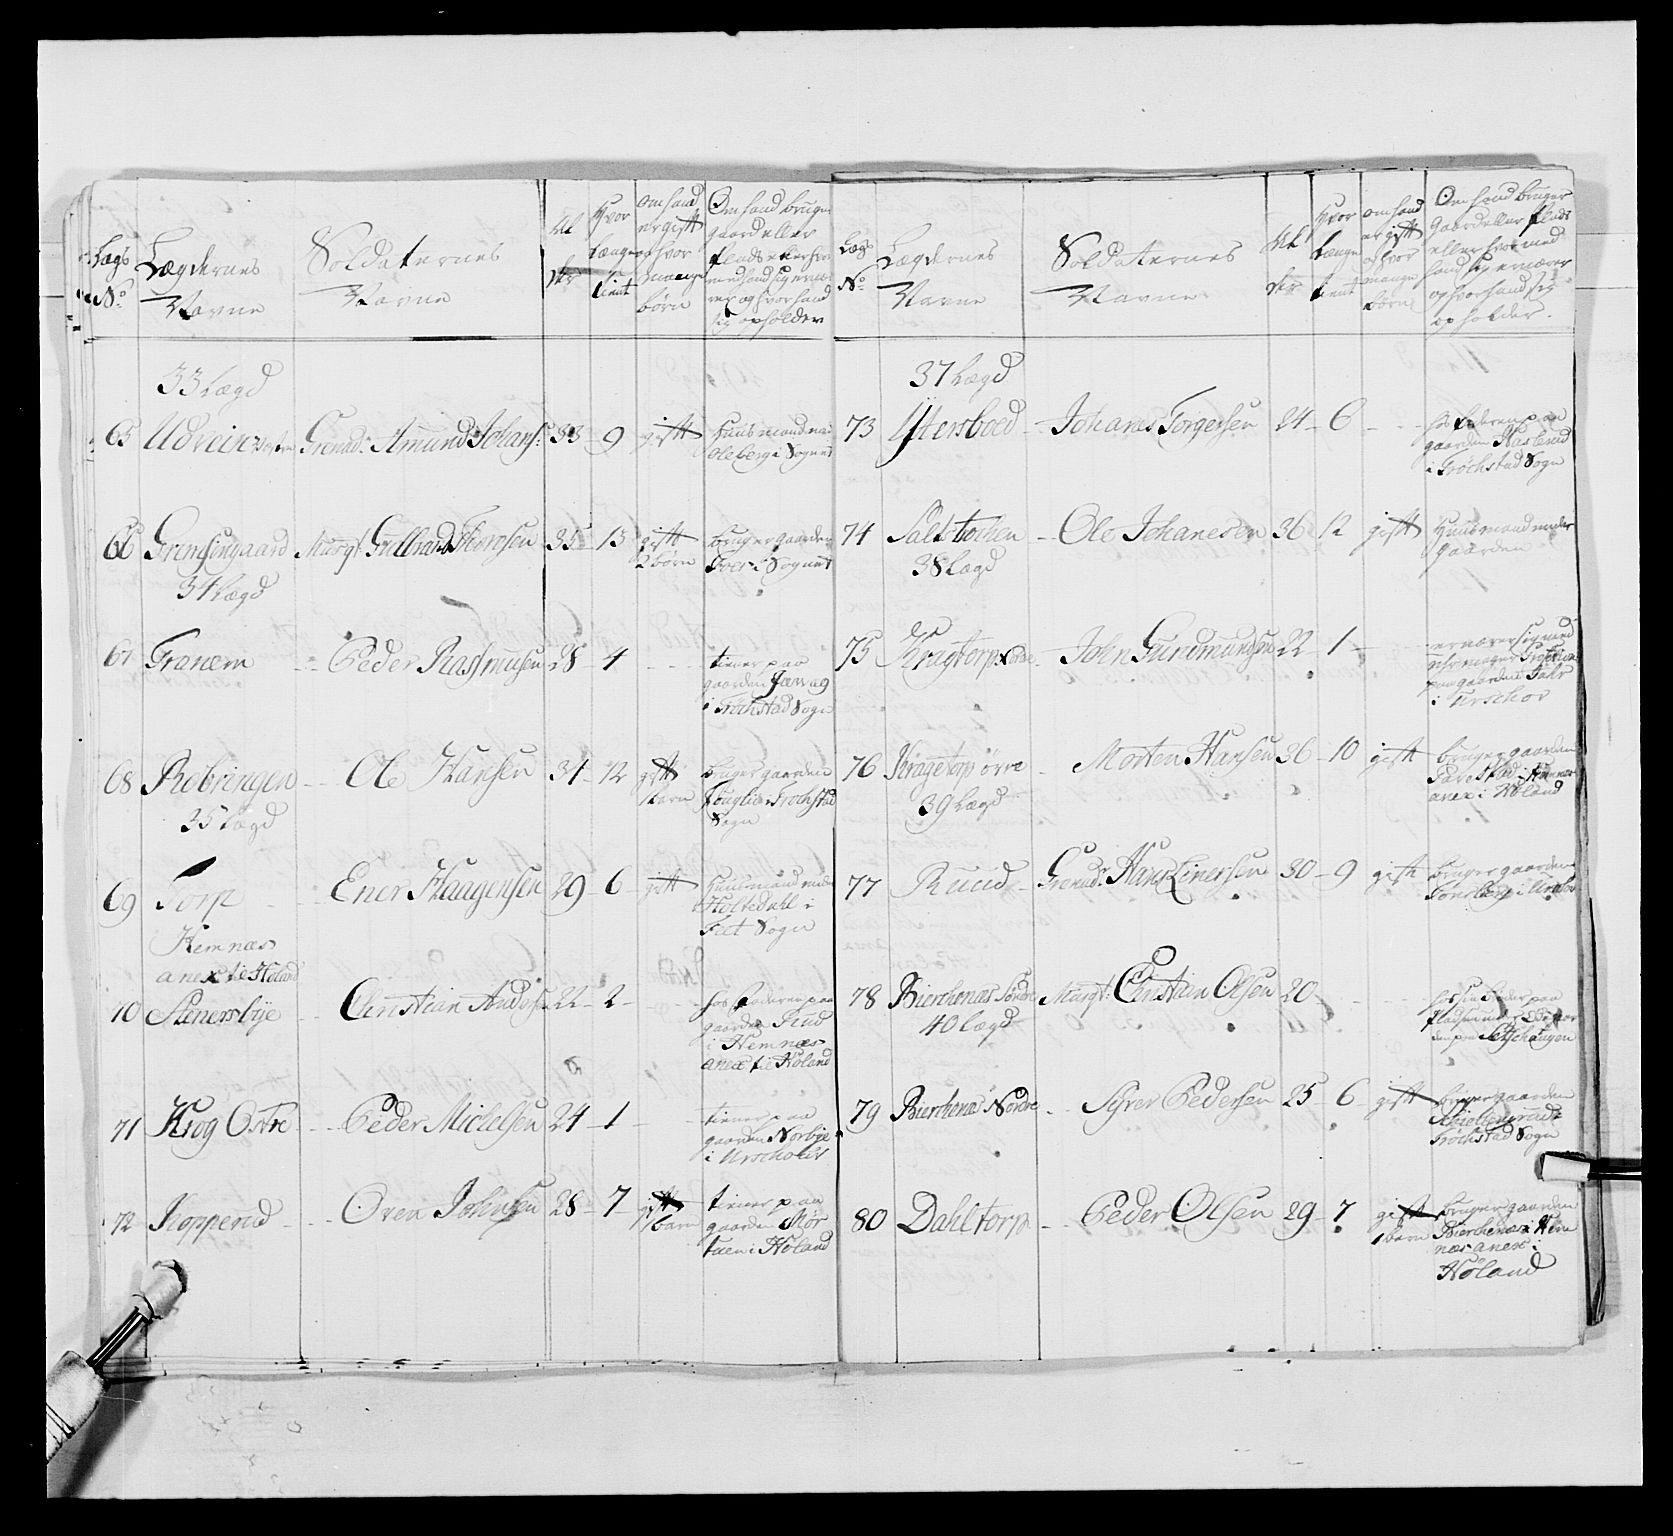 Lægs No Lægdernes Navne Soldaternes Navne Al der Hvor længe tient Om hand er gift og hvor mange børn Om hand bruger gaard eller plads eller hvor med hand sig ernærer og hvor hand sig opholder
33 Lægd
65 Udvein Grenad: Amund Johans: 33 - 9 gift Huusmand Oleberg i Sognet
66 Gremsingaard Mursgt: Gulbrand Thoresen 35 - 13 gift 2 børn bruger gaarden i Sognet
34 Lægd
67 Granem - Peder Rasmusen 28 - 4 - tiener paa gaarden i Trøchstad Sogn
68 Robringen - Ole Hansen 34 - 12 gift 1 barn bruger gaarden i Trøchstad Sogn
35 Lægd
69 Torp Ener Haagensen 29 - 6 - gift Huusmand under Holtedahl i Feet Sogn
Hemnæs anex til Høland
70 Stenersbÿe - Christian Anders: 22 - 2 - hos faderen paa gaarden Fund i Hemnæs anex til Høland
71 Krog Østre - Peder Michelsen 24 - 1 - tiener paa gaarden Norbÿe i Urschoug
72 Kopperud - Oven Johnsen 28 - 7 gift 1 barn tiener paa gaarden Mørtuen i Høland
Lægs No Lægdernes Navne Soldaternes Navne Al der Hvor længe tient om hand er gift og hvor mange børn Om hand bruger Gaard eller plads eller hvor med hand sig ernærer og hvor hand sig opholder.
37 Lægd
73 Ytersboed - Johanes Torgersen 24 - 6 - hos faderen paa gaarden Haslerud i Trøchstad Sogn
74 Saltstochen - Ole Johanesen 36 - 12 gift Huusmand under gaarden
38 Lægd
75 Kragtorp Nordre - John Gundmundsen 22 - 1 - ernærer sig med paa gaarden i Urschov
76 Kragetorp øvre - Morten Hansen 36 - 10 gift bruger gaarden anex i Høland
39 Lægd
77 Ruud - Grenad: Hans Einersen 30 - 9 gift bruger gaarden
78 Bierchenæs Søndre Mursgt: Christian Olsen 20 - hos sin fader paa
40 Lægd
79 Bierchenæs Nordre - Syver Pedersen 25 - 6 - gift bruger gaarden Trøchstad Sogn
80 Dahltorp - Peder Olsen 29 - 7 gift 1 barn bruger gaarden Bierchenæs i Hemnæs anex i Høland